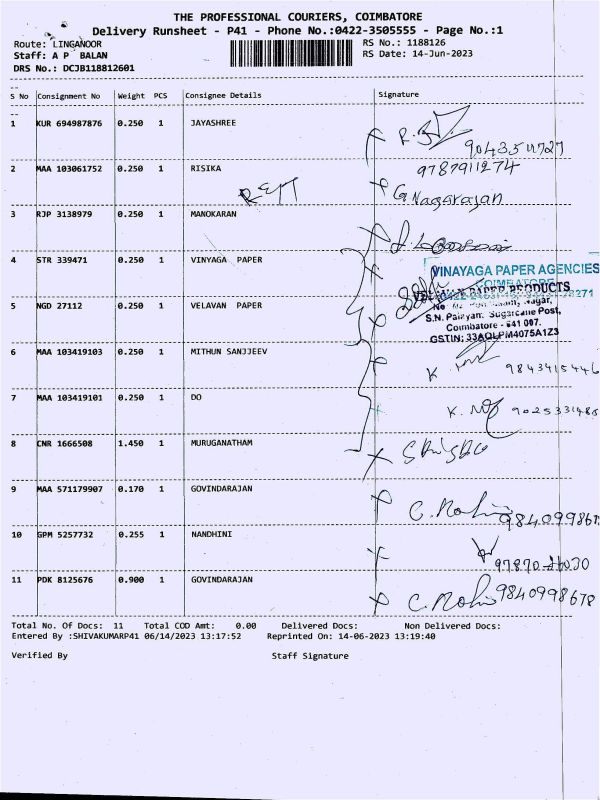 THE PROFESSIONAL COURIERS, COIMBATORE
Delivery Runsheet - P41 - Phone No.:0422-3505555 - Page No.:1
Route: LINGANOOR RS No.: 1188126
Staff: A P BALAN RS Date: 14-Jun-2023
DRS No.: DCJB118812601
S No Consignment No Weight PCS Consignee Details Signature
1 KUR 694987876 0.250 1 JAYASHREE
2 MAA 103061752 0.250 1 RISIKA 9787911274
G Nagarajan
3 RJP 3138979 0.250 1 MANOKARAN
4 STR 339471 0.250 1 VINYAGA PAPER
VINAYAGA PAPER AGENCIES
COIMBATORE
PAPER PRODUCTS
5 NGD 27112 0.250 1 VELAVAN PAPER
S.N. Palayam, Sugarcane Post,
Coimbatore - 641 007.
GSTIN: 33AQLPM4075A1Z3
6 MAA 103419103 0.250 1 MITHUN SANJJEEV 9843415446
7 MAA 103419101 0.250 1 DO 9025331486
8 CNR 1666508 1.450 1 MURUGANATHAM
9 MAA 571179907 0.170 1 GOVINDARAJAN C. Mohi
10 GPM 5257732 0.255 1 NANDHINI
11 PDK 8125676 0.900 1 GOVINDARAJAN C. Mohi 9840998678
Total No. Of Docs: 11 Total COD Amt: 0.00 Delivered Docs: Non Delivered Docs:
Entered By :SHIVAKUMARP41 06/14/2023 13:17:52 Reprinted On: 14-06-2023 13:19:40
Verified By Staff Signature